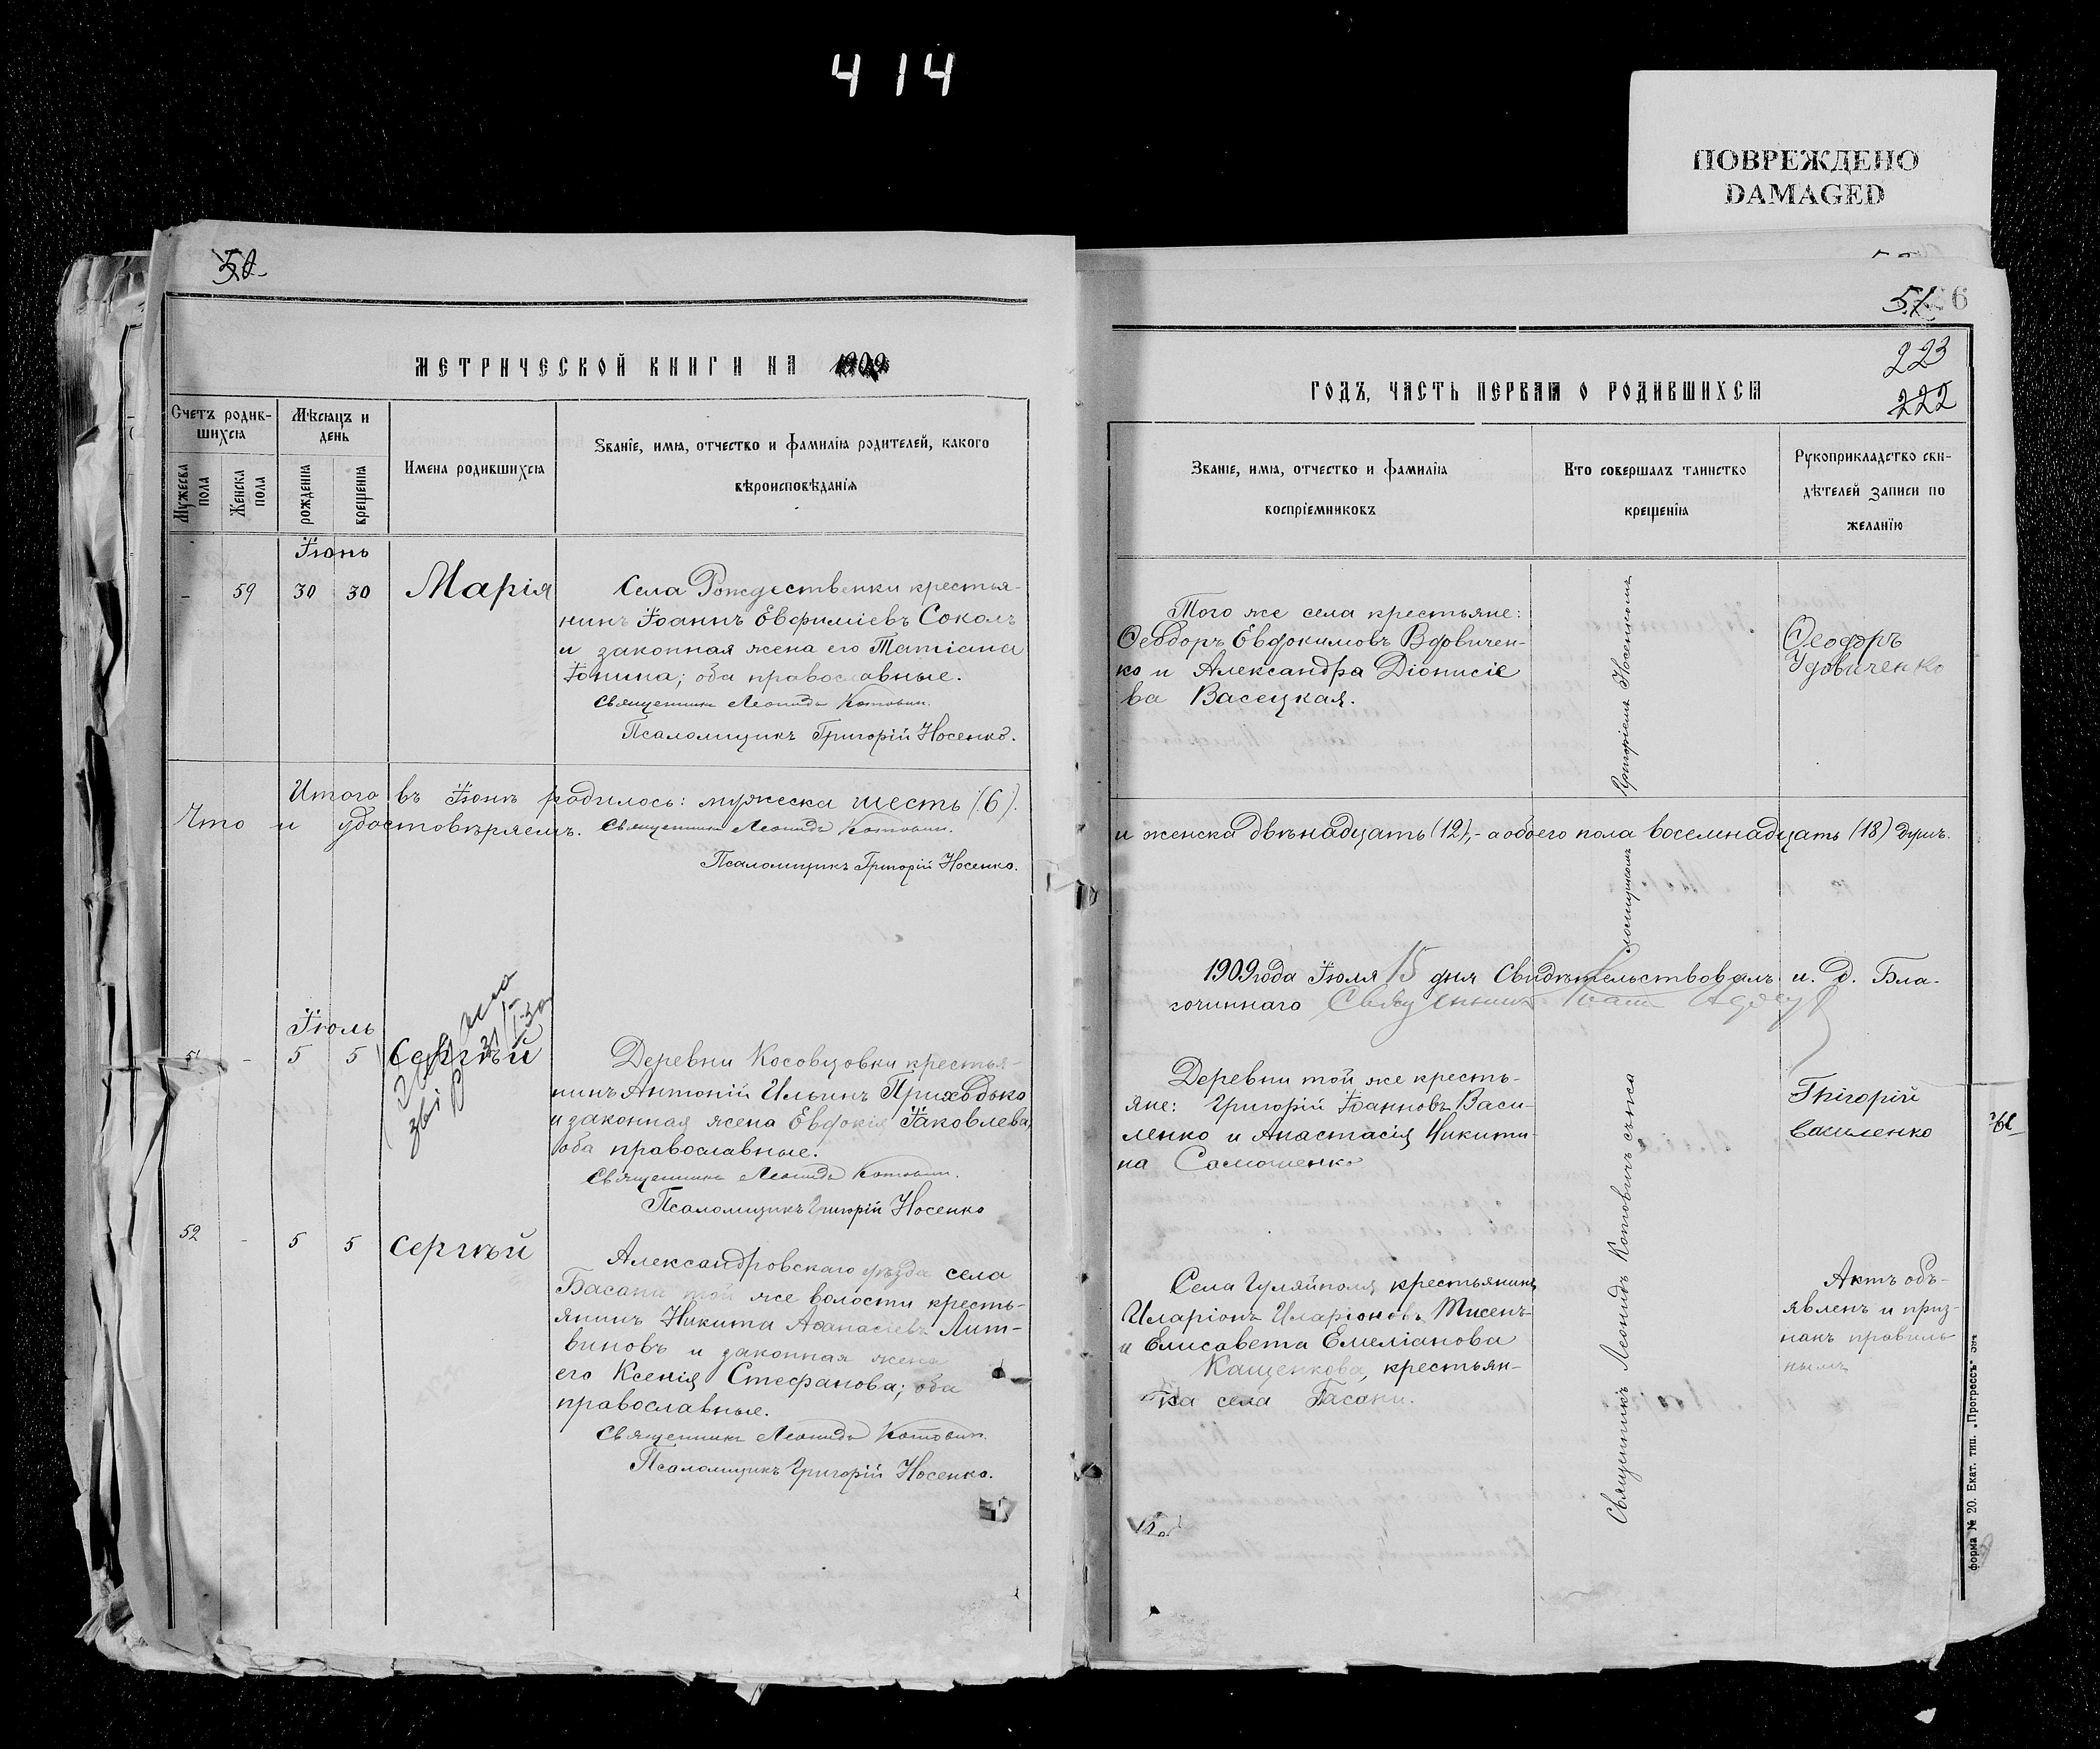 414
ПОВРЕЖДЕНО
DAMAGED
50
МЕТРИЧЕСКОЙ КНИГИ НА 1909
Счетъ родив-
шихся
Мѣсяцъ и
день
Мужеска
пола
Женска
пола
рожденія
крещенія
Имена родившихся
Званіе, имя, отчество и фамилія родителей, какого
вѣроисповѣданія
Іюнь
- 59 30 30 Марія
Села Рождественки крестья-
нинъ Іоаннъ Евфиміевъ Соколъ
и законная жена его Татіана
Іонина; оба православные.
Священникъ Леонидъ Котовичъ.
Псаломщикъ Григорій Носенко.
Итого въ Іюнѣ родилось: мужеска шесть (6).
Что и удостовѣряемъ. Священникъ Леонидъ Котовичъ.
Псаломщикъ Григорій Носенко.
Іюль
51 - 5 5 Сергѣй
Деревни Косовцовки крестья-
нинъ Антоній Ильинъ Приходько
и законная жена Евдокія Іаковлева,
оба православные.
Священникъ Леонидъ Котовичъ.
Псаломщикъ Григорій Носенко
52 - 5 5 Сергѣй
Александровскаго уѣзда села
Басани той же волости кресть-
янинъ Никита Аѳанасіевъ Лит-
виновъ и законная жена
его Ксенія Стефанова; оба
православные.
Священникъ Леонидъ Котовичъ.
Псаломщикъ Григорій Носенко.
51
6
223
222
ГОДЪ, ЧАСТЬ ПЕРВАЯ О РОДИВШИХСЯ
Званіе, имя, отчество и фамилія
воспріемниковъ
Кто совершалъ таинство
крещенія
Рукоприкладство сви-
дѣтелей записи по
желанію
Того же села крестьяне:
Ѳеодоръ Евдокимовъ Вдовичен-
ко и Александра Діонисіе
ва Васецкая.
Ѳеодоръ
Удовиченко
и женска двѣнадцать (12), - а обоего пола восемнадцать (18) душъ.
1909 года Іюля 15 дня Свидѣтельствовалъ и. д. Бла-
гочиннаго Священникъ
Деревни той же кресть-
яне: Григорій Іоанновъ Васи-
ленко и Анастасія Никити-
на Самошенко
Григорій
Василенко
Села Гуляйполя крестьянинъ
Иларіонъ Иларіоновъ
и Елисавета Емеліанова
Кащенкова, крестьян-
ка села Басани.
Актъ объ-
явленъ и приз-
нанъ правиль
нымъ
Священникъ Леонидъ Котовичъ съ псаломщикомъ Григоріемъ Носенкомъ
форма № 20. Екат. тип. „Прогрессъ"